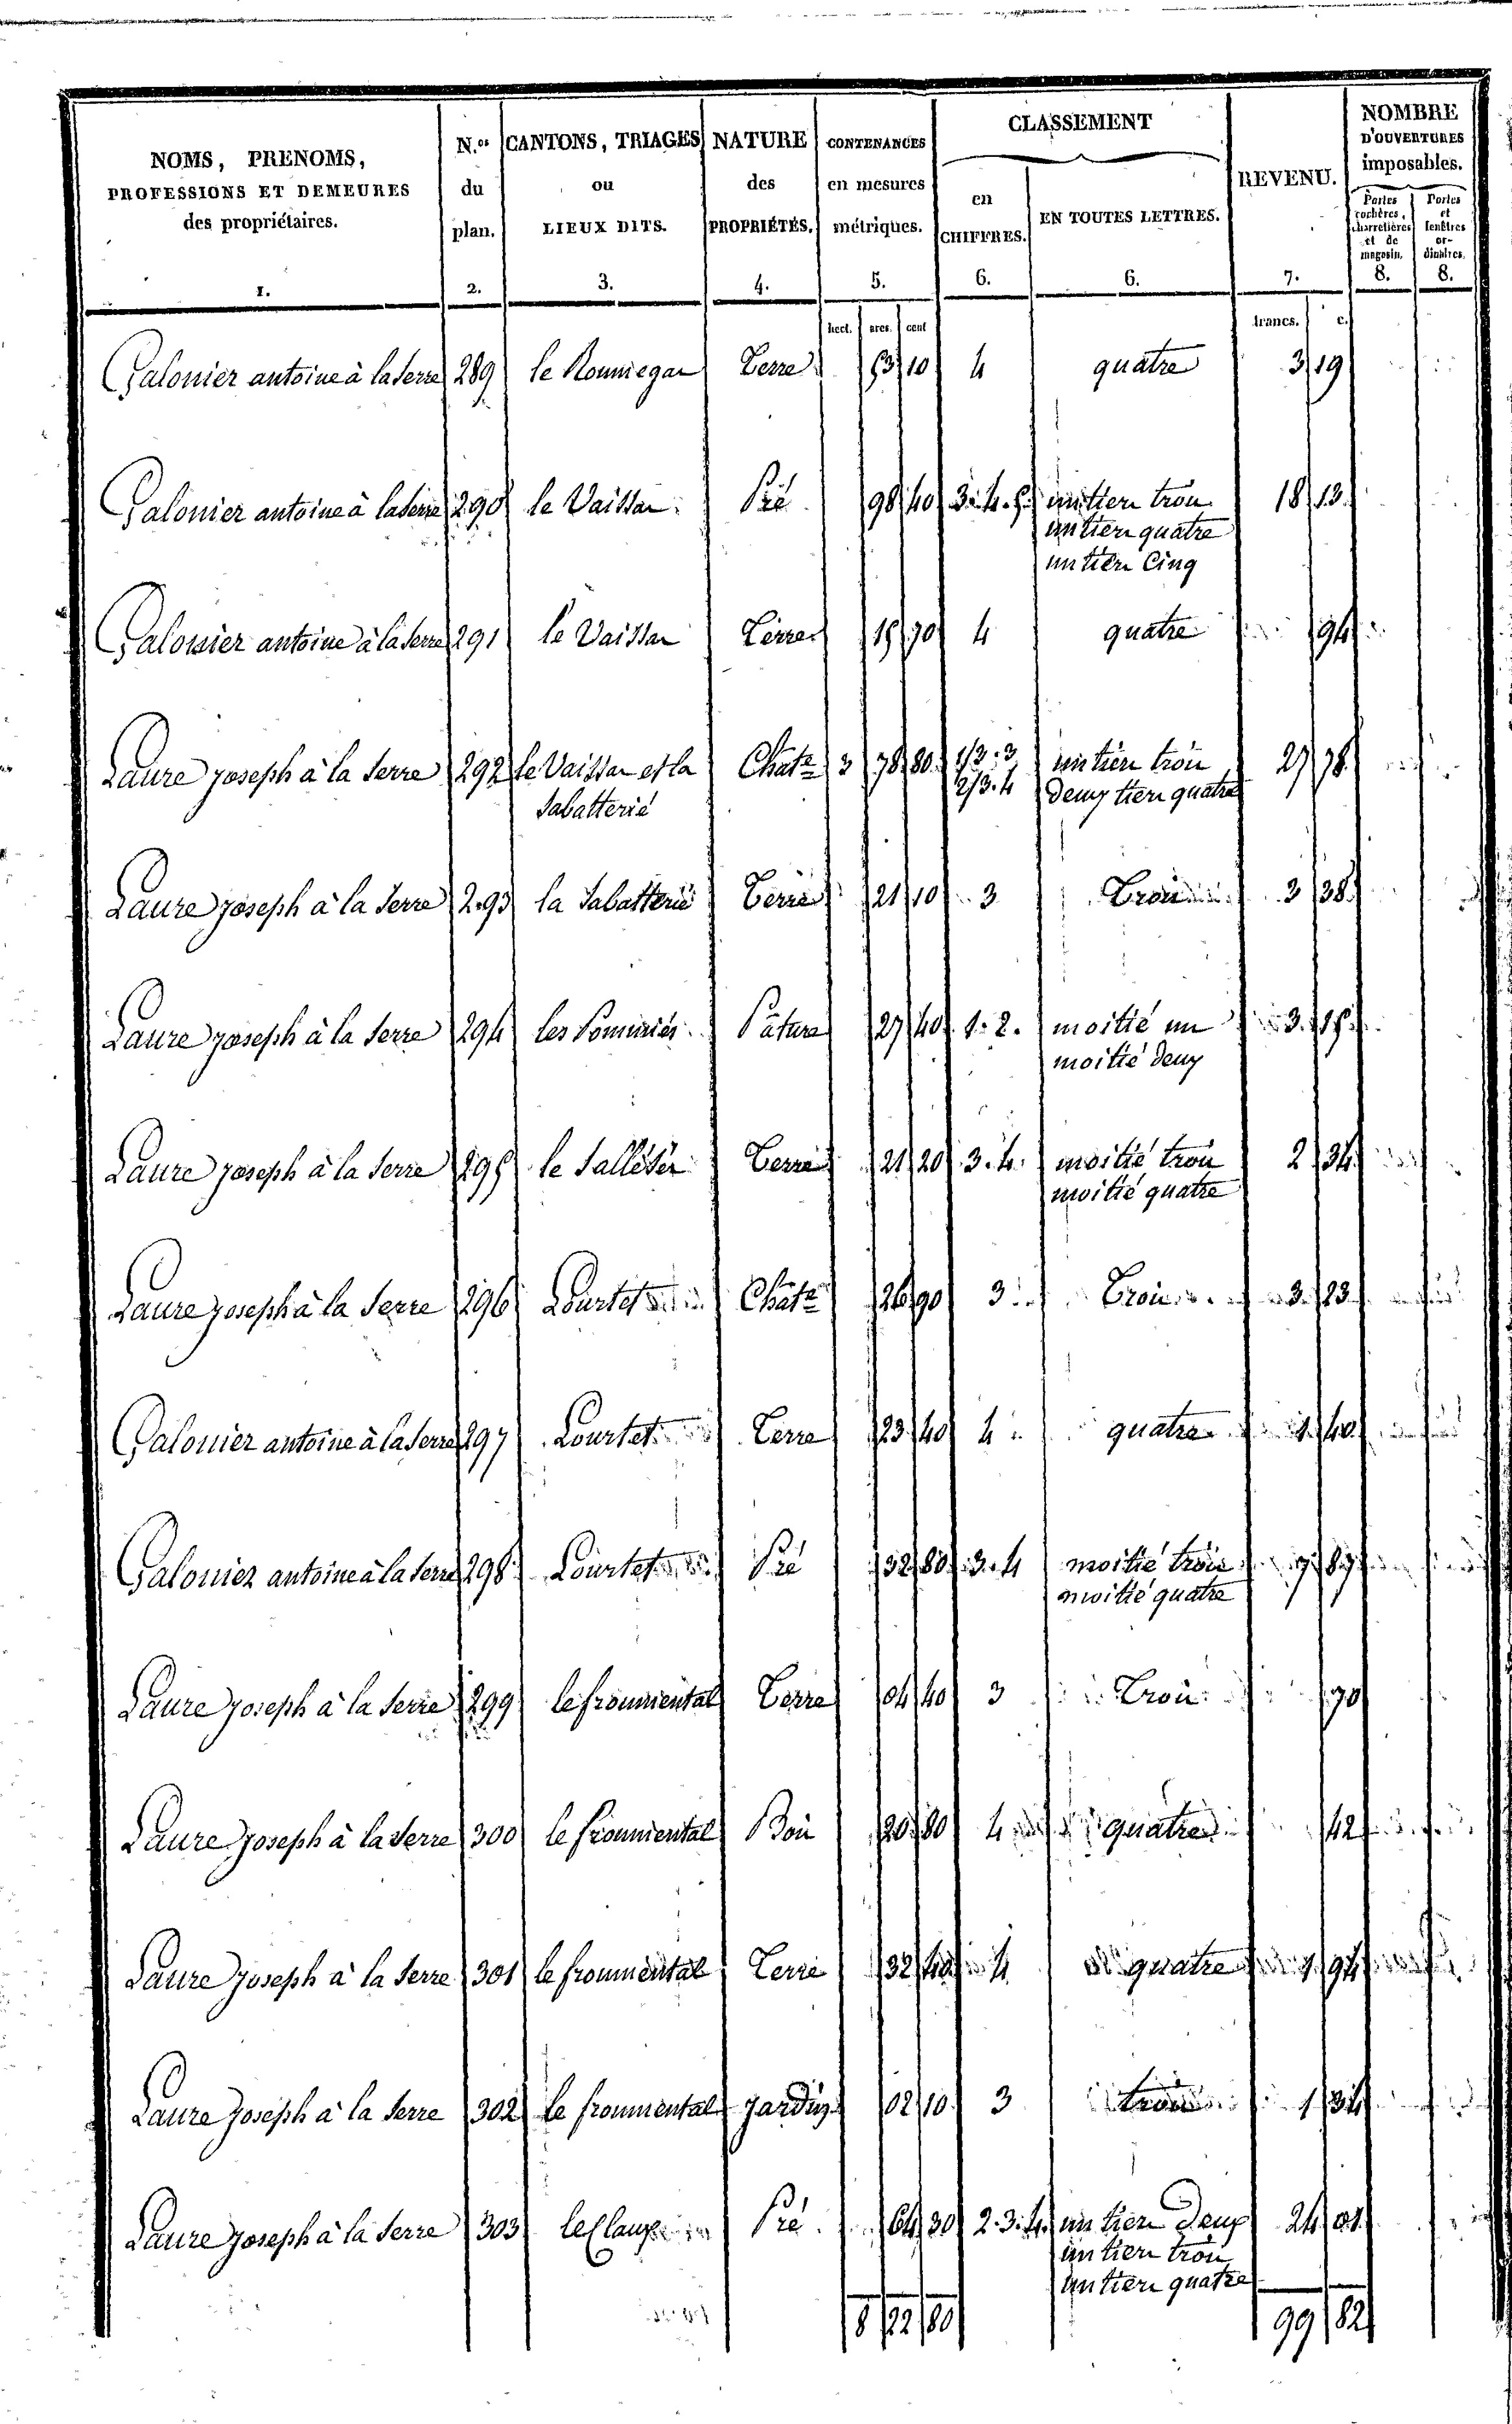 NOMS, PRENOMS, PROFESSIONS ET DEMEURES des propriétaires. N.os du plan. CANTONS, TRIAGES ou LIEUX DITS. NATURE des PROPRIÉTÉS. CONTENANCES en mesures métriques. CLASSEMENT en CHIFFRES. EN TOUTES LETTRES. REVENU. NOMBRE D'OUVERTURES imposables. Portes cochères, charretières et de magasin. Portes et fenêtres ordinaires.
1. 2. 3. 4. 5. 6. 6. 7. 8. 8.
hect. ares. cent francs. c.
Galonier antoine à la Serre 289 le Roumegar Terre 53 10 4 quatre 3 19
Galonier antoine à la Serre 290 le Vaissar Pré 98 40 3. 4. 5. un tiers trois 18 13
un tiers quatre
un tiers Cinq
Galonier antoine à la Serre 291 le Vaissar Terre 15 70 4 quatre 94
Laure joseph à la Serre 292 le Vaissar et la Chatre 3 78 80 1/3. 3 un tiers trois 27 78
Sabatterié 2/3. 4 deux tiers quatre
Laure joseph à la Serre 293 la Sabatterié Terre 21 10 3 Trois 3 38
Laure joseph à la Serre 294 les Pommiés Pature 27 40 1. 2. moitié un 3 15
moitié deux
Laure joseph à la Serre 295 le Terre 21 20 3. 4. moitié trois 2 34
moitié quatre
Laure joseph à la Serre 296 Lourtet Chatre 26 90 3 Trois 3 23
Galonier antoine à la Serre 297 Lourtet Terre 23 40 4 quatre 1 40
Galonier antoine à la Serre 298 Lourtet Pré 32 80 3. 4 moitié trois 7 87
moitié quatre
Laure joseph à la Serre 299 le froumental Terre 04 40 3 Trois 70
Laure joseph à la Serre 300 le froumental Bois 20 80 4 quatre 42
Laure joseph à la Serre 301 le froumental Terre 32 40 4 quatre 1 94
Laure joseph à la Serre 302 le froumental jardin 02 10 3 trois 1 34
Laure joseph à la Serre 303 les Claux Pré 64 30 2. 3. 4. un tiers deux 24 01
un tiers trois
un tiers quatre
8 22 80 99 82